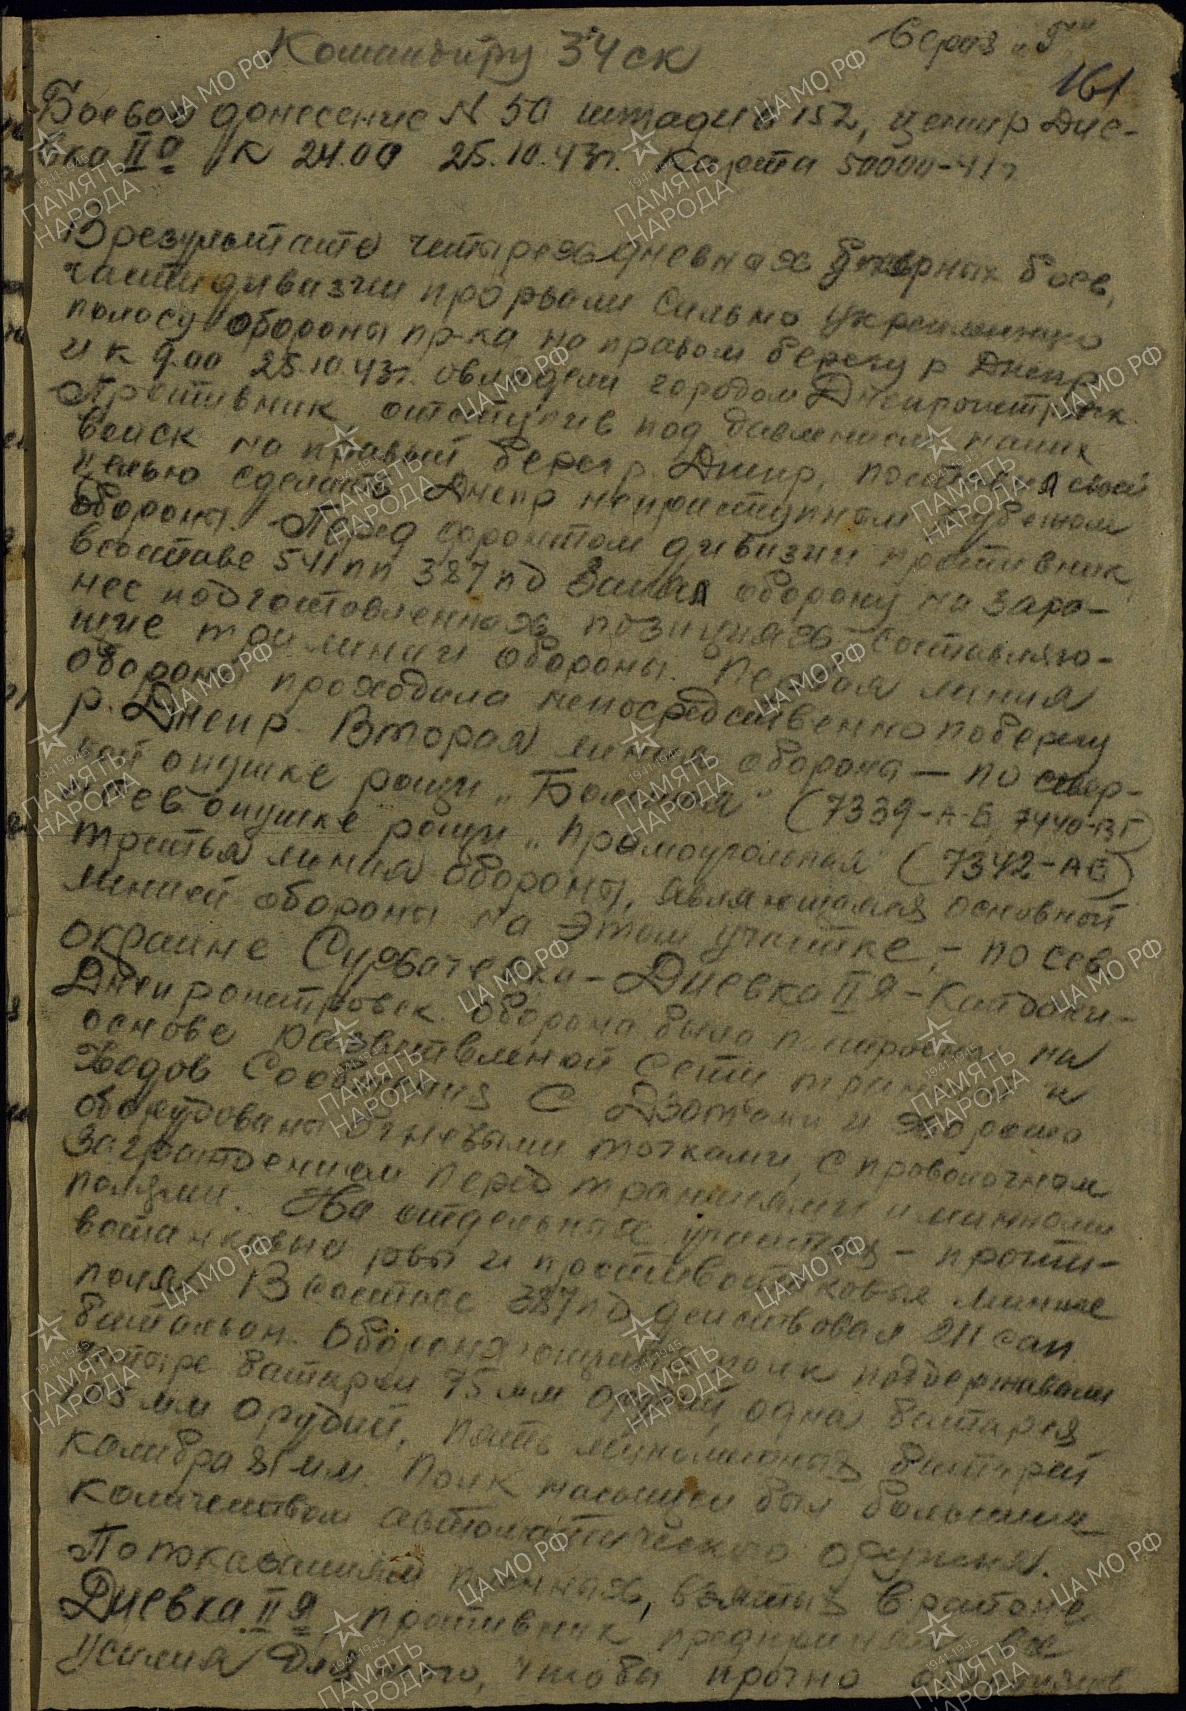 Серия "Г"
161
Командиру 34ск
Боевое донесение N 50 штадив 152, центр Дие-
вка IIа К 24.00 25.10.43г. Карта 50000-41г.
В результате читырехдневных упорных боев,
части дивизии прорвали сильно укрепленную
полосу обороны пр-ка на правом берегу р. Днепр
и к 9.00 25.10.43г. овладели городом Днепропетровск.
Противник отступив под давлением наших
войск на правый берег р. Днепр, поставил своей
целью сделать Днепр неприступным рубежом
обороны. Перед фронтом дивизии противник
в составе 541пп 387пд занял оборону на зара-
нее подготовленных позициях составляю-
щие три линии обороны. Первая линия
обороны проходила непосредственно по берегу
р. Днепр. Вторая линия обороны — по север-
ной опушке рощи „Большая" (7339-А-Б, 7440-ВГ)
и сев опушке рощи „Прямоугольная" (7342-АБ)
Третья линия обороны, являющаяся основной
линией обороны на этом участке, - по сев
окраине Сухачевка - Диевка II я - Кайдаки -
Днепропетровск. Оборона была построена на
основе развитвленой сети траншей и
ходов сообщения с Дзотами и хорошо
оборудованы огневыми точками, с проволочном
заграждением перед траншеями и минными
полями. На отдельных участках - проти-
вотанковые рвы и противотанковые минные
поля. В составе 387пд действовал 211 сап
батальон. Обороняющийся полк поддерживали
четыре батареи 75 мм орудий, одна батарея
105 мм орудий, пять минометных батарей
калибра 81 мм. Полк насыщен был большим
количеством автоматического оружия.
По показаниям пленных, взятых в районе
Диевка II я, противник предпринял все
усилия для того, чтобы прочно